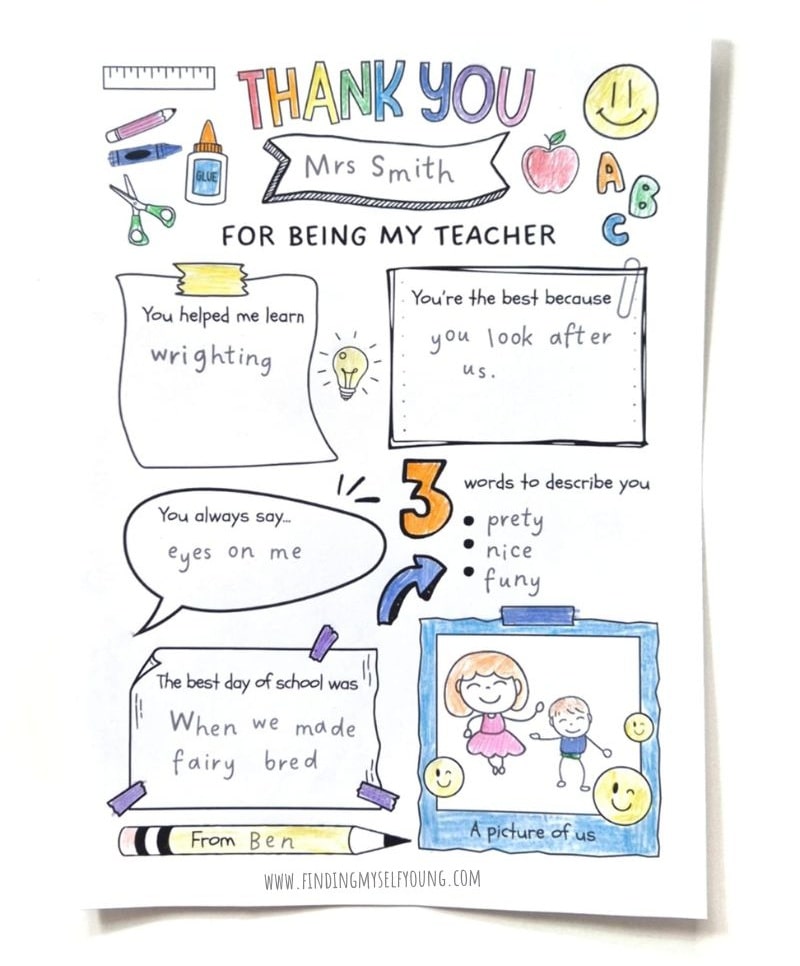 THANK YOU
Mrs Smith
FOR BEING MY TEACHER
GLUE
A
B
C
You helped me learn
wrighting
You're the best because
you look after
us.
You always say...
eyes on me
3
words to describe you
• prety
• nice
• funy
The best day of school was
When we made
fairy bred
A picture of us
From Ben
WWW.FINDINGMYSELFYOUNG.COM